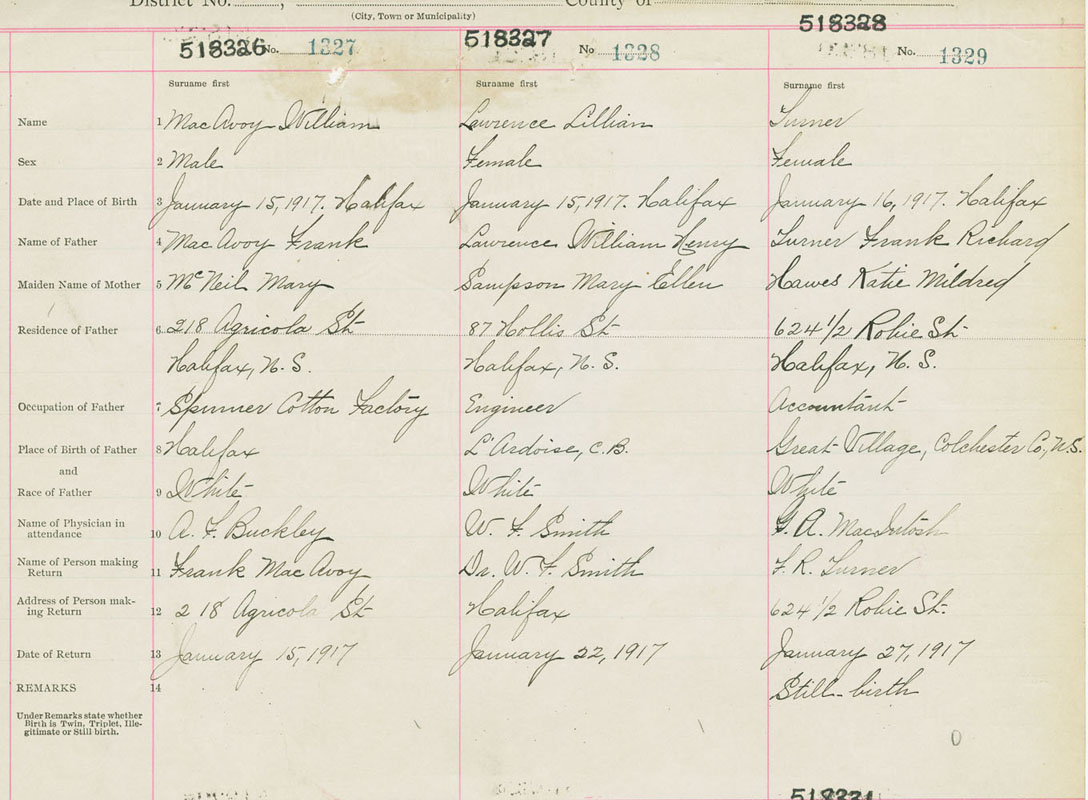 District No. , County of
(City, Town or Municipality)
518326 No. 1327 518327 No 1328 518328 No. 1329
Surname first Surname first Surname first
Name 1 MacAvoy William Lawrence Lillian Turner
Sex 2 Male Female Female
Date and Place of Birth 3 January 15, 1917. Halifax January 15, 1917. Halifax January 16, 1917. Halifax
Name of Father 4 MacAvoy Frank Lawrence William Henry Turner Frank Richard
Maiden Name of Mother 5 McNeil Mary Sampson Mary Ellen Hawes Katie Mildred
Residence of Father 6 218 Agricola St 87 Hollis St 624 1/2 Robie St.
Halifax, N.S. Halifax, N.S. Halifax, N.S.
Occupation of Father 7 Spinner Cotton Factory Engineer Accountant
Place of Birth of Father 8 Halifax L'Ardoise, C.B. Great Village, Colchester Co., N.S.
and
Race of Father 9 White White White
Name of Physician in
attendance 10 A. F. Buckley W. F. Smith G. A. MacIntosh
Name of Person making
Return 11 Frank MacAvoy Dr. W. F. Smith F. R. Turner
Address of Person mak-
ing Return 12 218 Agricola St Halifax 624 1/2 Robie St.
Date of Return 13 January 15, 1917 January 22, 1917 January 27, 1917
REMARKS 14 Still-birth
Under Remarks state whether
Birth is Twin, Triplet, Ille-
gitimate or Still birth.
0